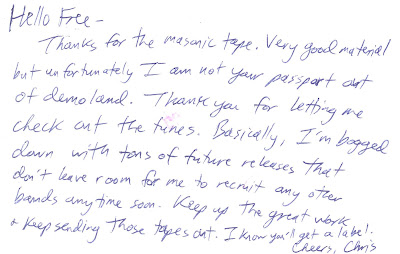 Hello Free -
Thanks for the masonic tape. Very good material
but unfortunately I am not your passport out
of demoland. Thank you for letting me
check out the tunes. Basically, I'm bogged
down with tons of future releases that
don't leave room for me to recruit any other
bands anytime soon. Keep up the great work
+ keep sending those tapes out. I know you'll get a label.
Cheers, Chris